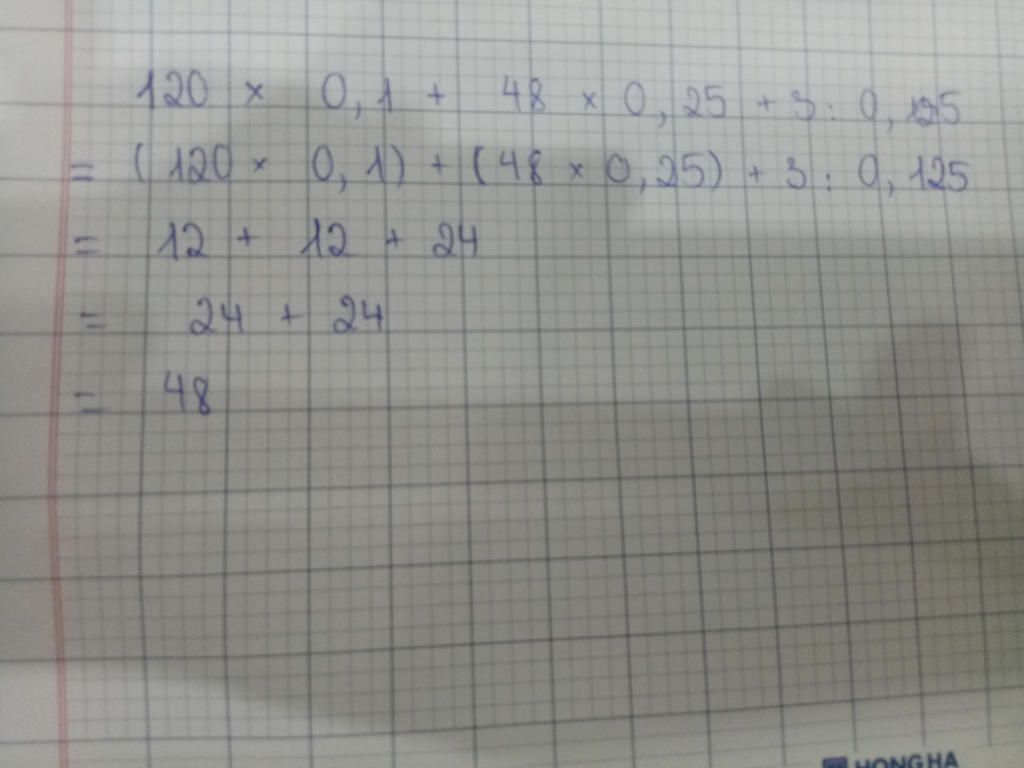 120 × 0,1 + 48 × 0,25 + 3 : 0,125
= (120 × 0,1) + (48 × 0,25) + 3 : 0,125
= 12 + 12 + 24
= 24 + 24
= 48
HONG HA